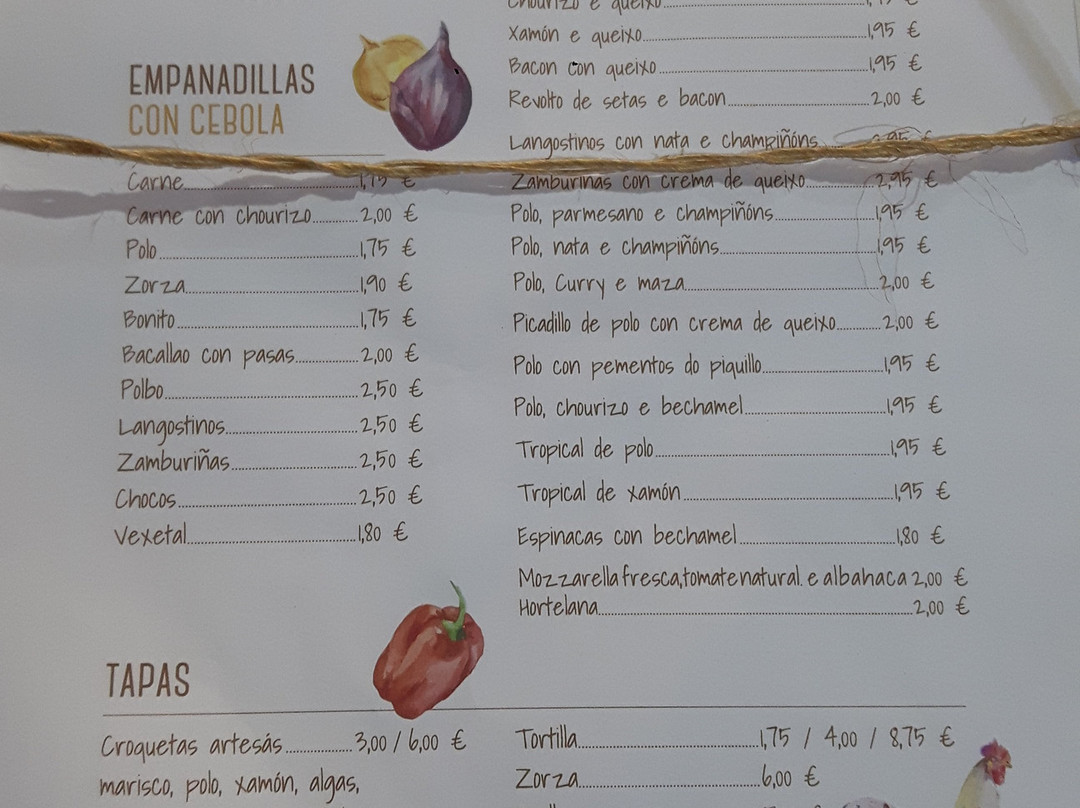 EMPANADILLAS
CON CEBOLA
Carne 1,75 €
Carne con chourizo 2,00 €
Polo 1,75 €
Zorza 1,90 €
Bonito 1,75 €
Bacallao con pasas 2,00 €
Polbo 2,50 €
Langostinos 2,50 €
Zamburiñas 2,50 €
Chocos 2,50 €
Vexetal 1,80 €
Chourizo e queixo €
Xamón e queixo 1,95 €
Bacon con queixo 1,95 €
Revolto de setas e bacon 2,00 €
Langostinos con nata e champiñóns €
Zamburiñas con crema de queixo 2,95 €
Polo, parmesano e champiñóns 1,95 €
Polo, nata e champiñóns 1,95 €
Polo, Curry e maza 2,00 €
Picadillo de polo con crema de queixo 2,00 €
Polo con pementos do piquillo 1,95 €
Polo, chourizo e bechamel 1,95 €
Tropical de polo 1,95 €
Tropical de xamón 1,95 €
Espinacas con bechamel 1,80 €
Mozzarella fresca,tomate natural. e albahaca 2,00 €
Hortelana 2,00 €
TAPAS
Croquetas artesás 3,00 / 6,00 €
marisco, polo, xamón, algas,
Tortilla 1,75 / 4,00 / 8,75 €
Zorza 6,00 €